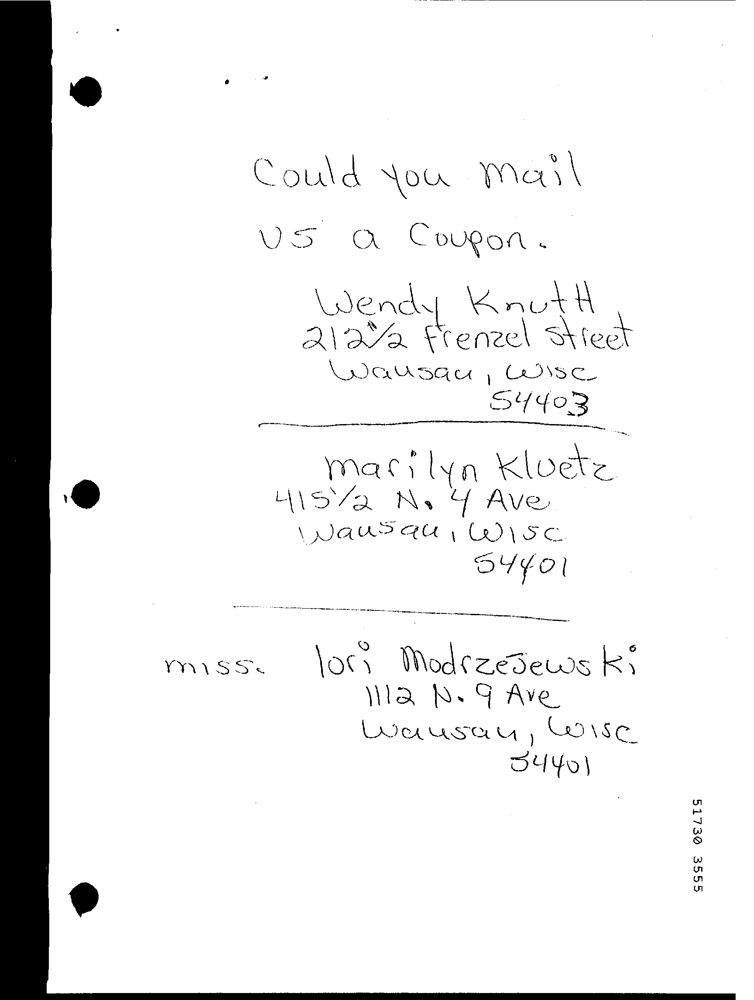 Could you mail
us a Coupon.
Wendy KnutH
212 1/2 Frenzel street
Wausau, Wisc
54403
marilyn Kluetz
415 1/2 N. 4 Ave
Wausau, Wisc
54401
miss. lori Modrzejewski
1112 N. 9 Ave
Wausau, Wisc
54401
51730 3555